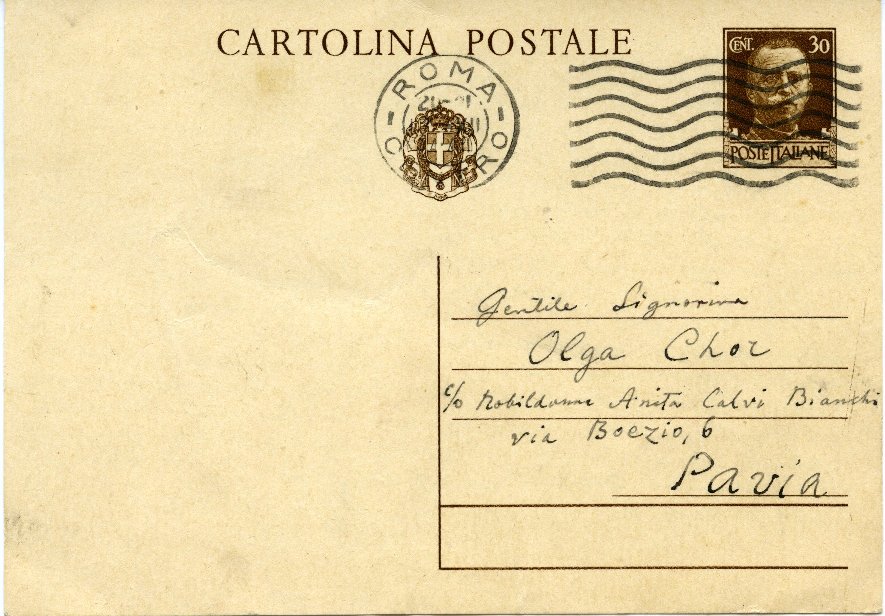 CARTOLINA POSTALE
CENT. 30
ROMA
POSTE ITALIANE
Gentile Signorina
Olga Chor
c/o Nobildonna Anita Calvi Bianchi
via Boezio, 6
Pavia